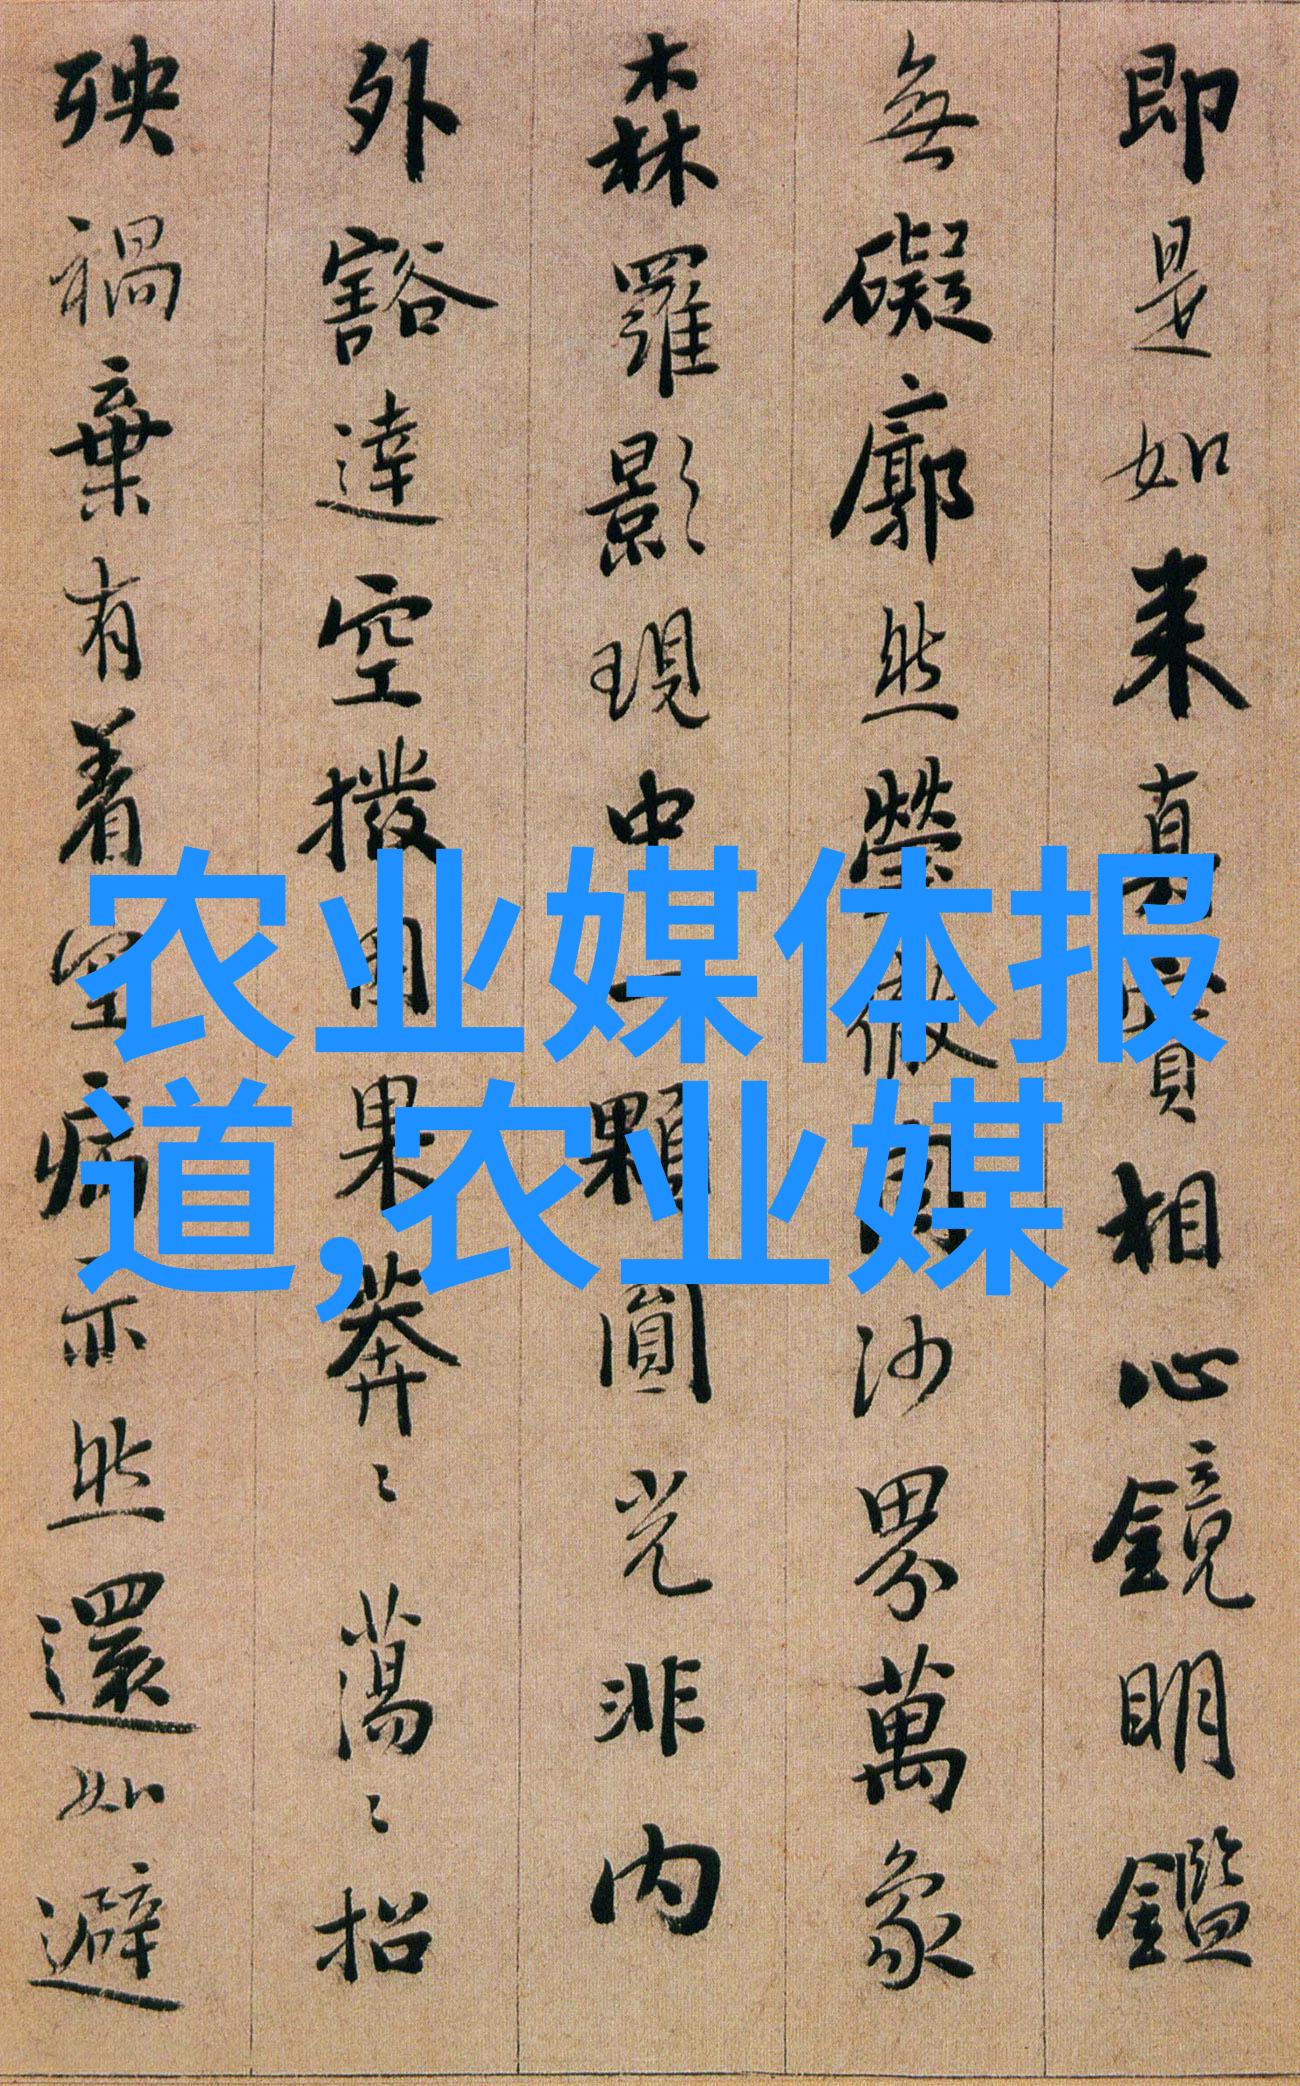 即是如来真實相心鏡明鑑
無礙廓然瑩徹周沙界萬象
森羅影現中一顆圓光非内
外豁達空撥因果莽〻蕩〻招
殃禍棄有着空病亦然還如避
农业媒体报
道,农业媒